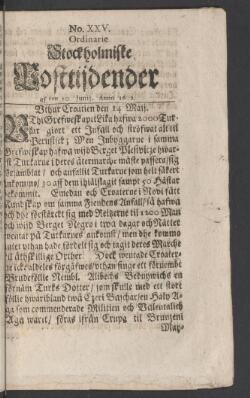 No. XXV.
Ordinarie
Stockholmiske
Posttijdender
af den 20. Junij. Anno 16
Vthur Croatien den 14 Maij.
Thi Grefwskap Lika hafwa 2000 Tur-
kar giort ett Infall och ströfwat alt til
Perusitie; Men Inbyggarne i samma
Grefwskap hafwa widh Berget
Turkarne i deres återmarche måste passera sig
och anfallit Turkarne som helt säkert
ankommo/ 30 aff dem ihiälslagit sampt 50 Hästar
bekommit. Emedan och Croaterne i Novi fått
Kundskap om samma Fiendens Anfall/ så hafwa
och the förstärckt sig med till 1200 Man
och widh Berget i twå dagar och Nätter
wentat på Turkarnes ankomst/ men the komme
intet vthan hade fördelt sig och tagit deres Marche
til åthskillige Orther. Dock wentade Croater-
ne icke aldeles förgäfwes/ vthan finge ett förnembt
Nembl. Alibechs
en förnäm Turks Dotter/ som skulle med ett stort
Föllie hwaribland twå Halv A-
ga som commenderade Militien och
Aga warit/ föras ifrån Crupa til
May-